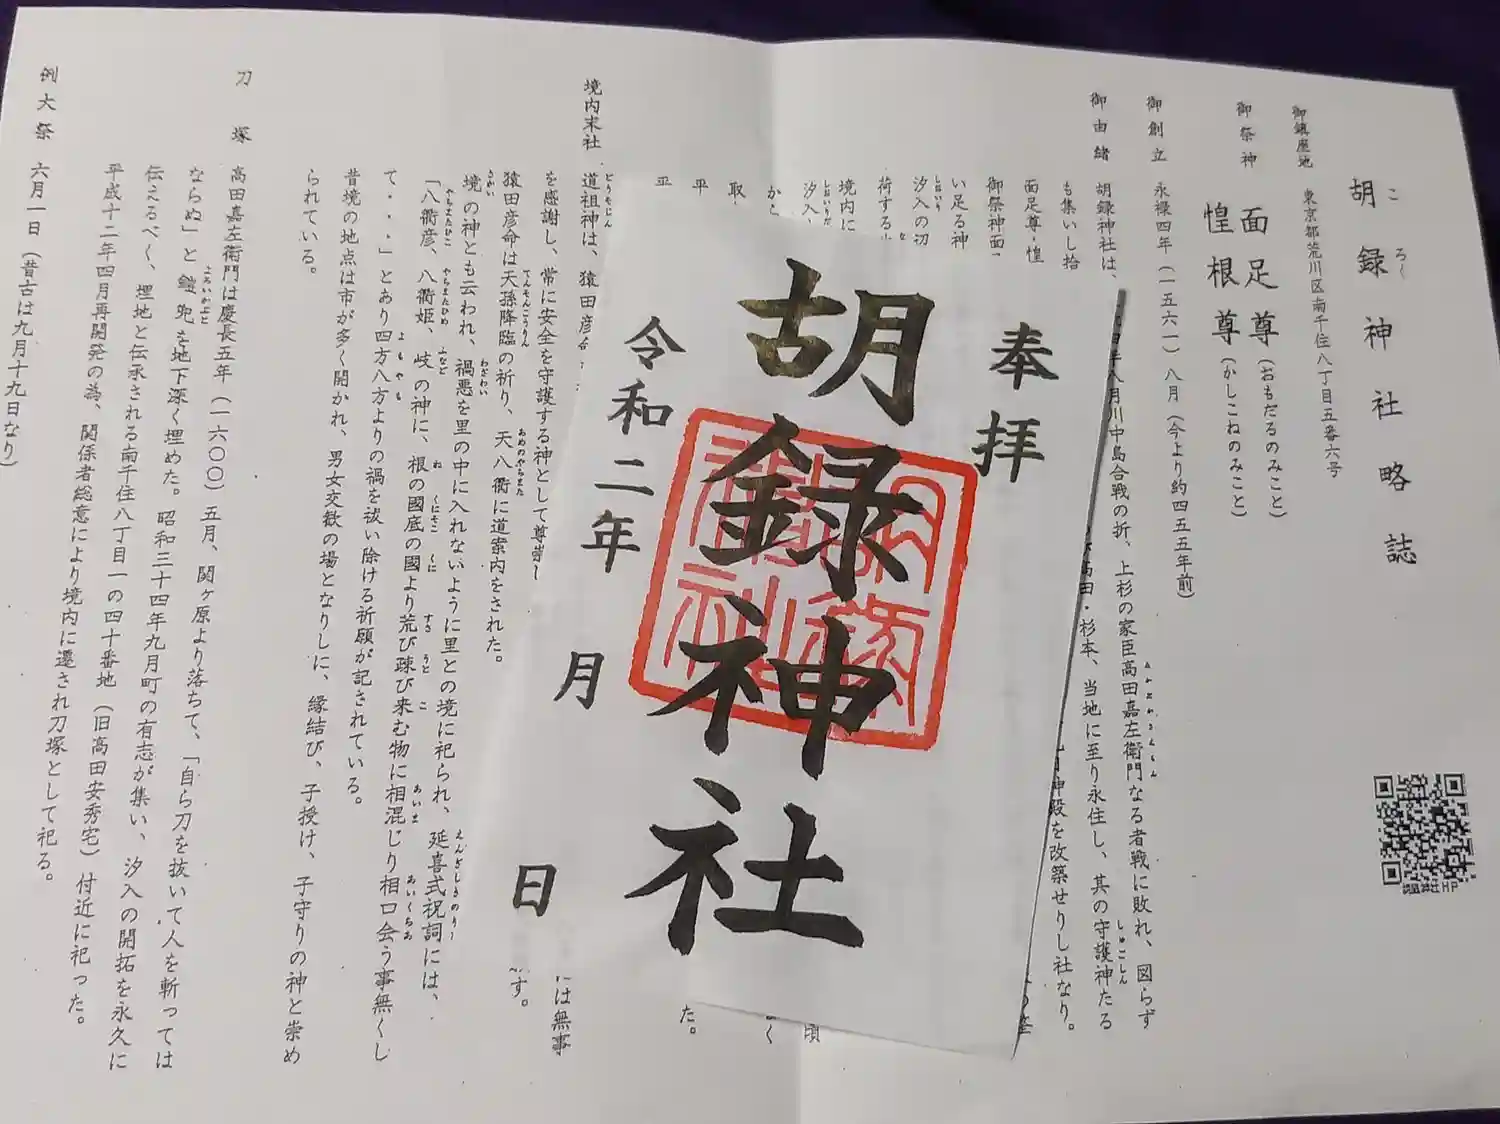 胡録神社略誌
ころく
御鎮座地 東京都荒川区南千住八丁目五番六号
御祭神 面足尊(おもだるのみこと)
惶根尊(かしこねのみこと)
御創立 永禄四年(一五六一)八月(今より約四五五年前)
御由緒 胡録神社は、
八月川中島合戦の折、上杉の家臣高田嘉左衛門なる者戦に敗れ、図らず
も集いし拾
高田・杉本、当地に至り永住し、其の守護神たる
しゅごしん
面足尊・惶
神殿を改築せりし社なり。
御祭神面
い足る神
汐入の切
しおいり
荷する
境内に
汐入
しおいり
から
取
平
平
た。
には無事
す。
境内末社 道祖神は、猿田彦命
どうそじん
を感謝し、常に安全を守護する神として尊崇し
猿田彦命は天孫降臨の祈り、天八衢に道案内をされた。
てんそんこうりん あめのやちまた
境の神とも云われ、禍悪を里の中に入れないように里との境に祀られ、延喜式祝詞には、
さかい わざわい えんぎしきのりー
「八衢彦、八衢姫、岐の神に、根の國底の國より荒び疎び来む物に相混じり相口会う事無くし
やちまたひこ やちまたひめ ふなど ね くにそこ くに すさ うと こ あいま あいくちあ
て・・・」とあり四方八方よりの禍を祓い除ける祈願が記されている。
よもやも
昔境の地点は市が多く開かれ、男女交歓の場となりしに、縁結び、子授け、子守りの神と崇め
られている。
刀塚 高田嘉左衛門は慶長五年(一六〇〇)五月、関ヶ原より落ちて、「自ら刀を抜いて人を斬っては
ならぬ」と鎧兜を地下深く埋めた。昭和三十四年九月町の有志が集い、汐入の開拓を永久に
よろいかぶと
伝えるべく、埋地と伝承される南千住八丁目一の四十番地(旧高田安秀宅)付近に祀った。
平成十二年四月再開発の為、関係者総意により境内に遷され刀塚として祀る。
例大祭 六月一日(昔古は九月十九日なり)
胡録神社HP
奉拝
胡録神社
令和二年 月 日